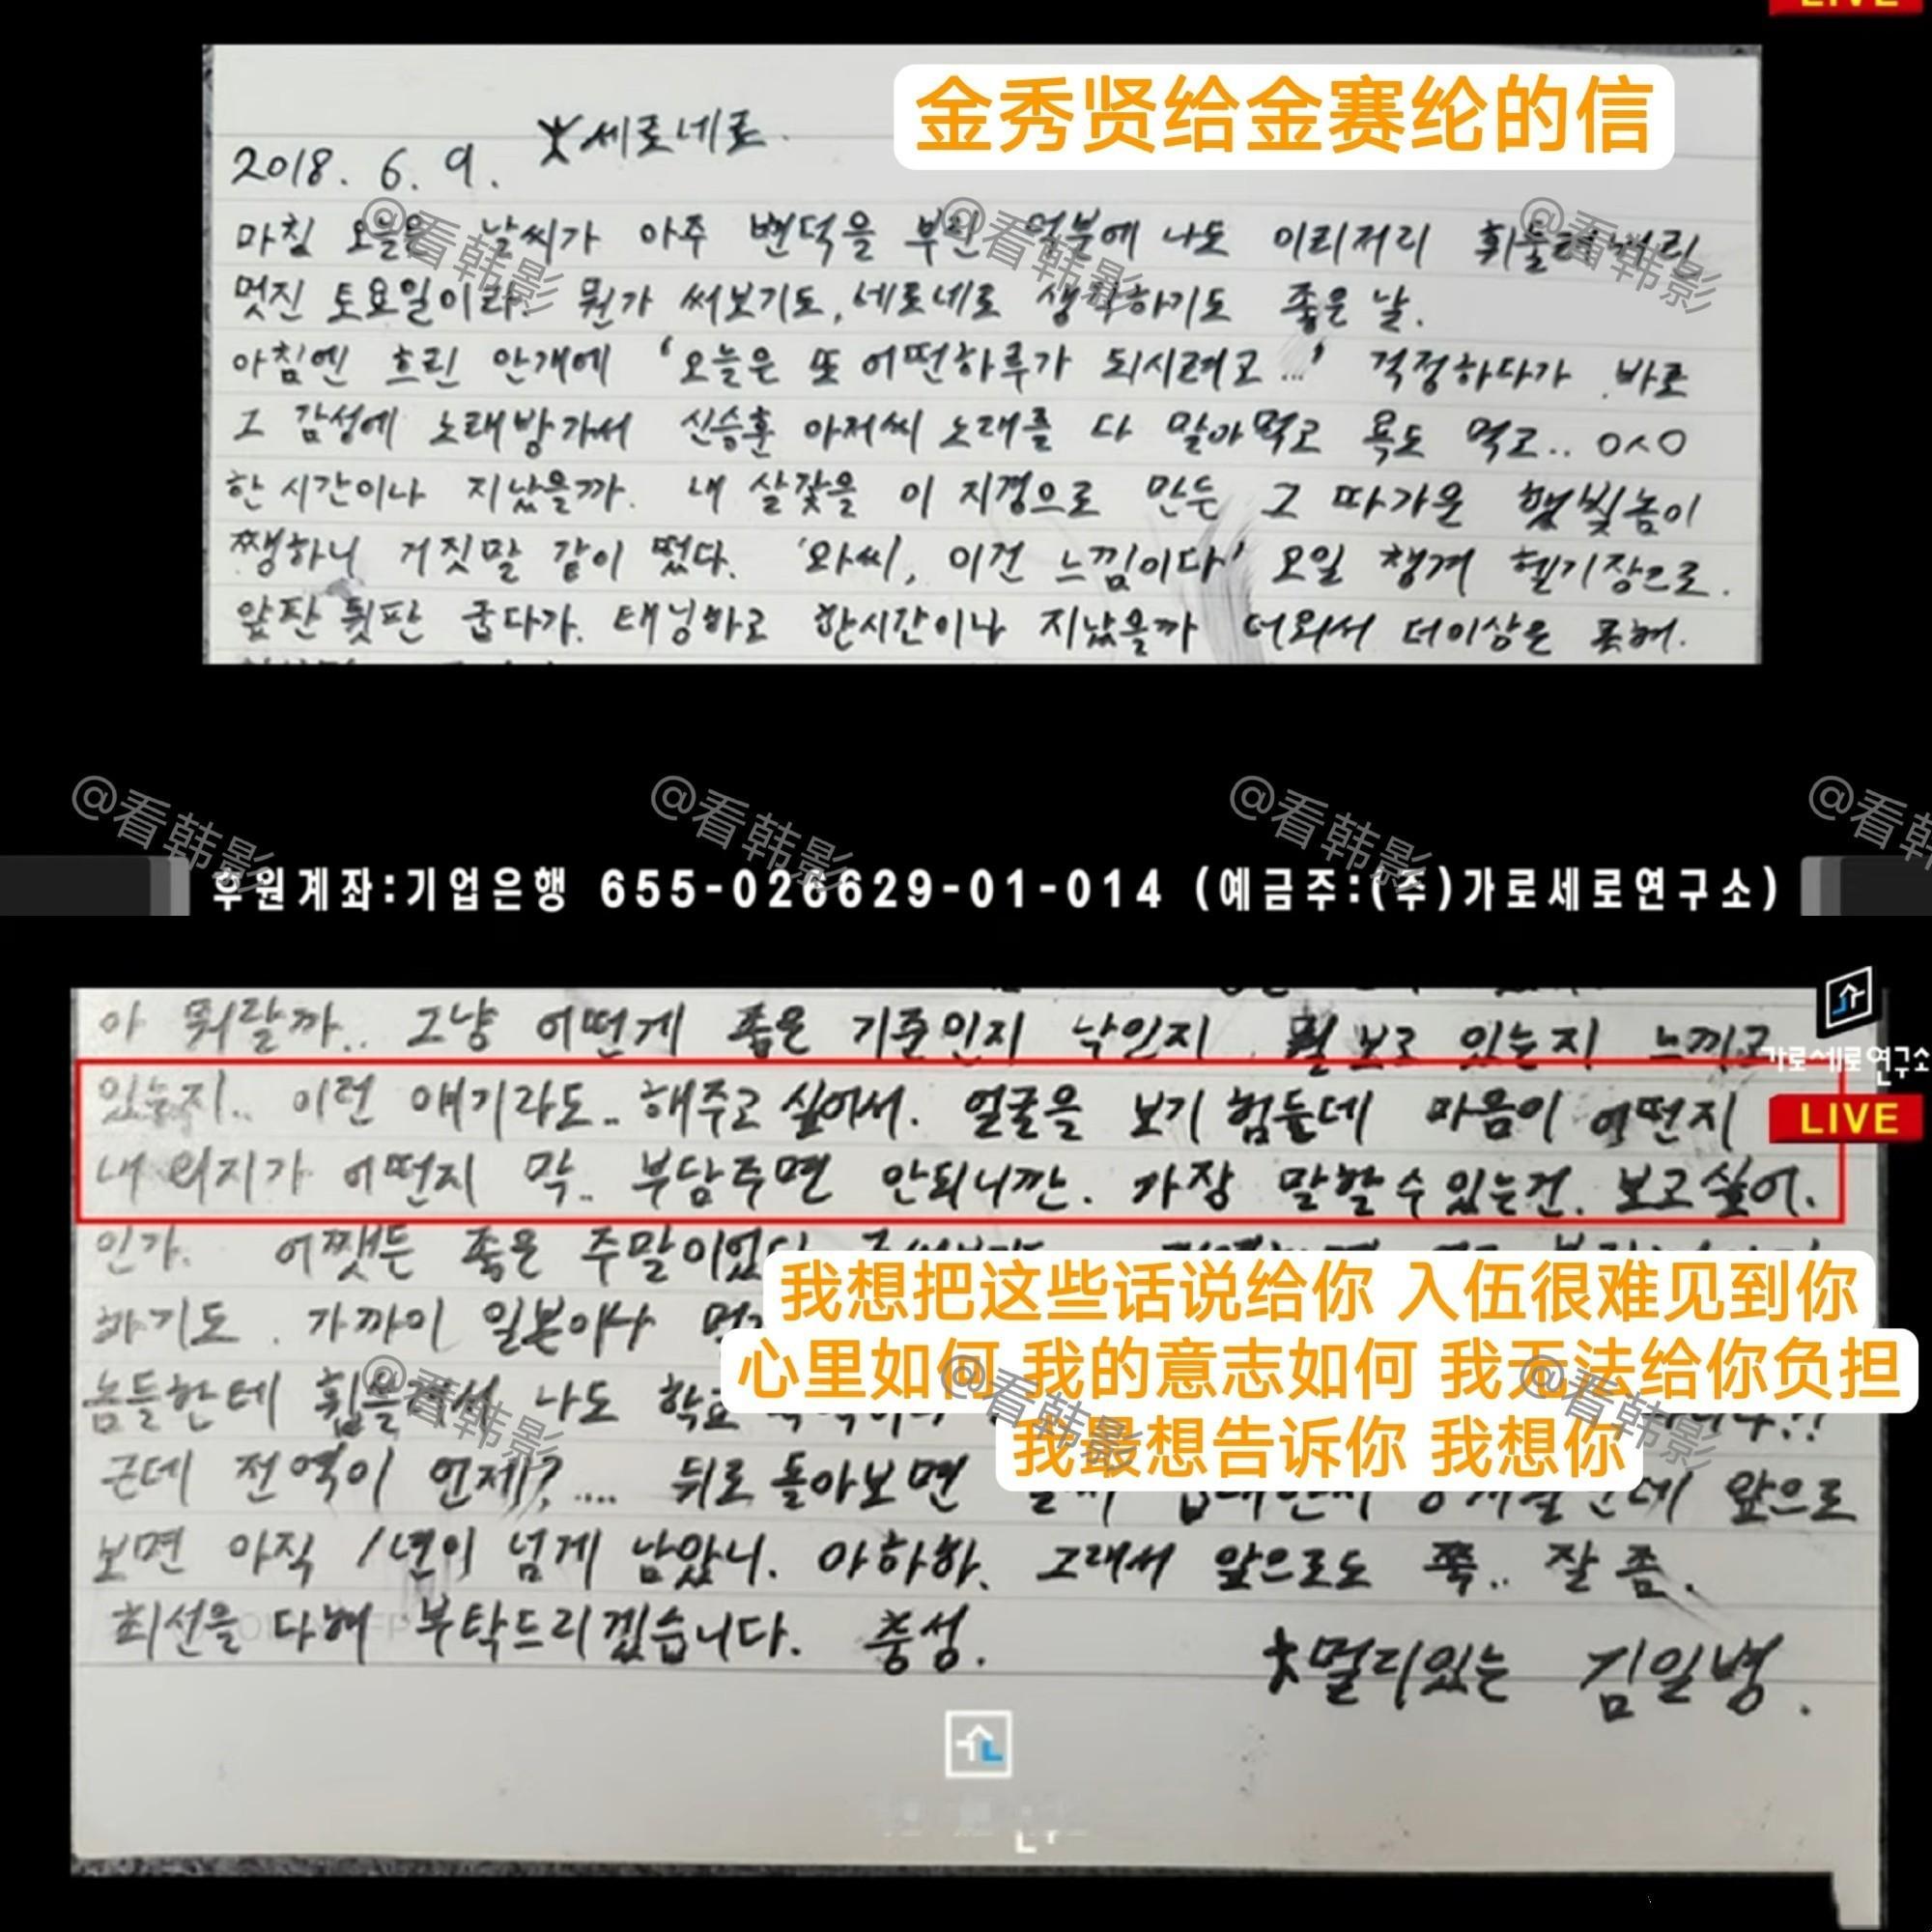 LIVE
金秀贤给金赛纶的信
세로네로.
2018. 6. 9.
마침 오늘은 날씨가 아주 변덕을 부린 덕분에 나도 이리저리
멋진 토요일이라. 뭔가 써보기도, 세로네로 생각하기도 좋은 날.
아침엔 흐린 안개에 '오늘은 또 어떤하루가 되시려고...' 걱정하다가 바로
그 감성에 노래방가서 신승훈 아저씨 노래를 다 말아먹고 욕도 먹고.. ㅇㅅㅇ
한 시간이나 지났을까. 내 살갗을 이 지경으로 만든 그 따가운 햇빛놈이
쨍하니 거짓말 같이 떴다. '와씨, 이건 느낌이다' 오일 챙겨 헬기장으로.
앞판 뒷판 굽다가. 태닝하고 한시간이나 지났을까 더워서 더이상은 못해.
@看韩影 @看韩影 @看韩影
@看韩影 @看韩影 @看韩影 @看韩
후원계좌:기업은행 655-026629-01-014 (예금주:(주)가로세로연구소)
아 뭐랄까.. 그냥 어떤게 좋은 기준인지 낙인지 뭘 보고 있는지 느끼고
가로세로연구소
있는지.. 이런 얘기라도.. 해주고 싶어서. 얼굴을 보기 힘든데 마음이 어떤지
LIVE
내 의지가 어떤지 막.. 부담주면 안되니깐. 가장 말할 수 있는건. 보고싶어.
인가. 어쨌든 좋은 주말이었
我想把这些话说给你 入伍很难见到你
하기도. 가까이 일본이나
心里如何 我的意志如何 我无法给你负担
놈들한테 휩쓸려서 나도
我最想告诉你 我想你
근데 전역이 언제?.... 뒤로 돌아보면 앞으로
보면 아직 1년이 넘게 남았니. 아하하. 그래서 앞으로도 쭉.. 잘 좀.
최선을 다해 부탁드리겠습니다. 충성.
멀리있는 김일병.
@看韩影 @看韩影 @看韩影